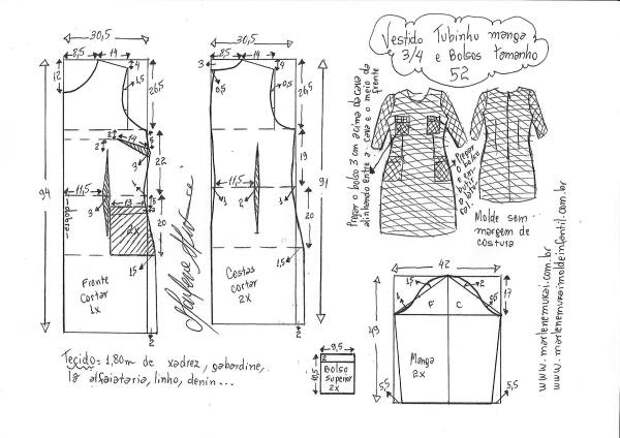 Vestido Tubinho manga
3/4 e Bolsos tamanho
52
30,5
8,5
19
4
12
1,5
26,5
94
2
2
19
3
22
11,5
3
19
dobra
2x
20
1,5
2
Frente
Cortar
1x
30,5
8,5
19
3
4
0,5
0,5
26,5
19
91
11,5
3
1
1
20
1,5
2
Costas
cortar
2x
Prepar o bolso 3 cm acima da cava
alinhando entre a cava e o meio da
frente
Molde sem
margem de
costura
42
1,5
2
F
C
17
49
Manga
2x
5,5
5,5
9,5
2
10,5
Bolso
superior
2x
Tecido = 1,80m de xadrez, gabardine,
lã alfaiataria, linho, denin...
www.marlenemukai.com.br
www.marlenemukaimoldeinfantil.com.br